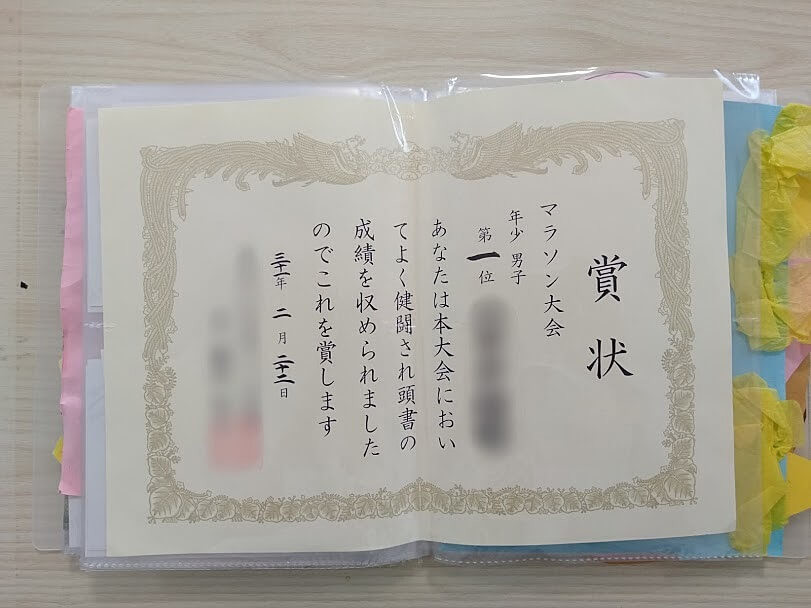 賞状
マラソン大会
年少 男子
第一位
あなたは本大会におい
てよく健闘され頭書の
成績を収められました
のでこれを賞します
三十一年 二月 二十二日